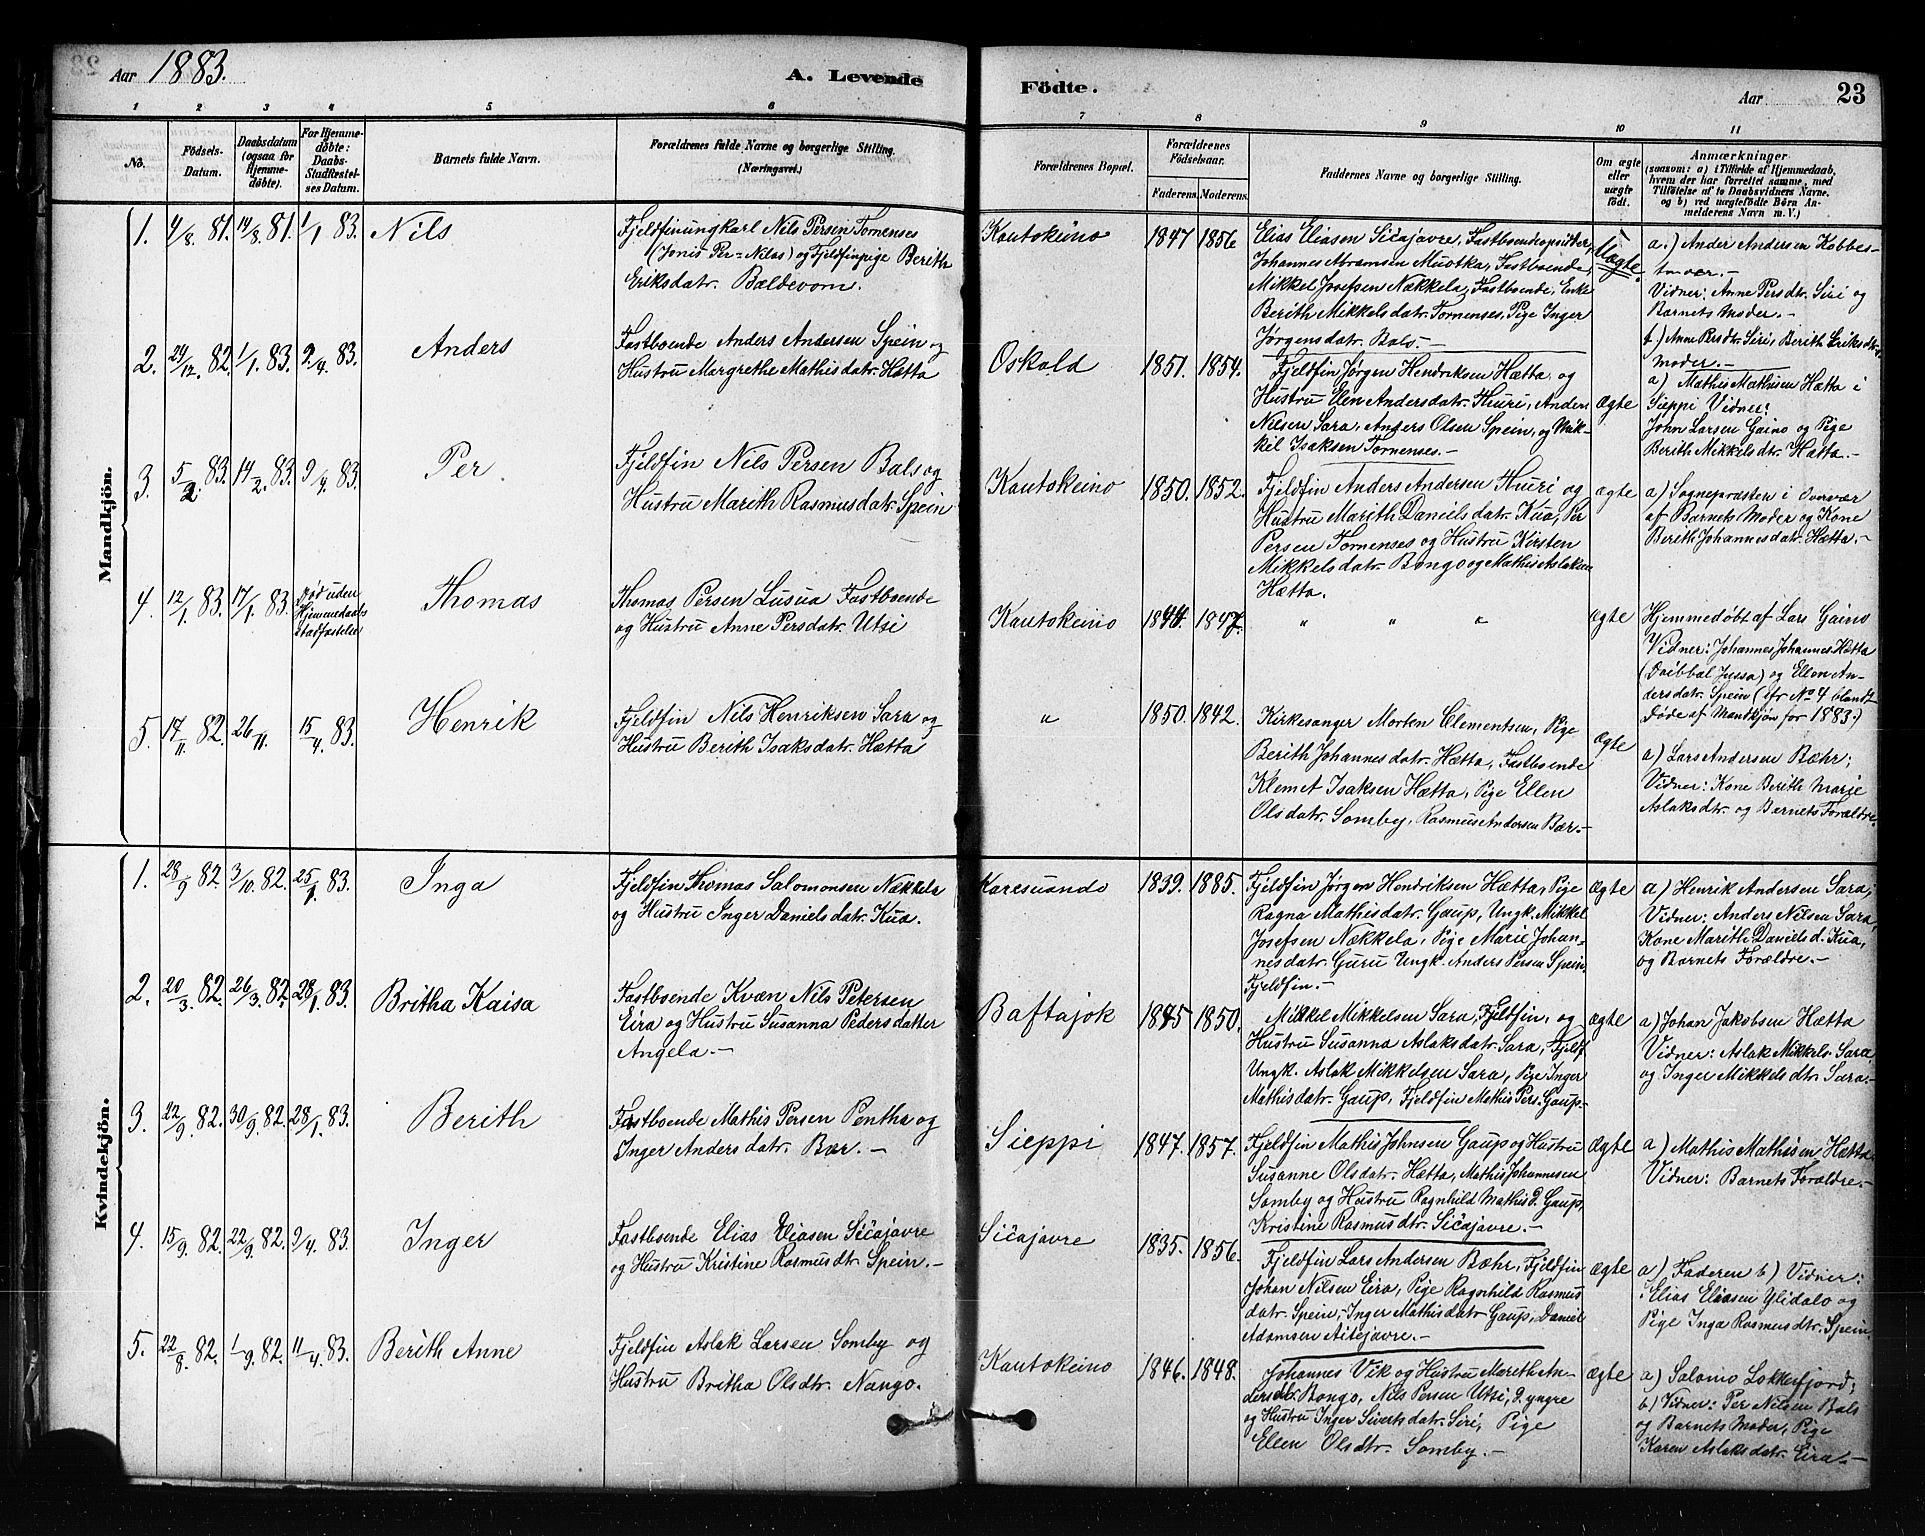 Aar 1883.
A. Levende
Födte.
Aar
23
1 2 3 4 5 6 7 8 9 10 11
No.
Födsels-
Datum.
Daabsdatum
(ogsaa for
Hjemme-
døbte).
For Hjemme-
döbte:
Daabs-
Stadfæstel-
ses Datum.
Barnets fulde Navn.
Forældrenes fulde Navne og borgerlige Stilling.
(Næringsvei.)
Forældrenes Bopæl.
Forældrenes
Fødselsaar.
Faderens. Moderens.
Faddernes Navne og borgerlige Stilling.
Om ægte
eller
uægte
födt.
Anmærkninger
(saasom: a) i Tilfælde af Hjemmedaab,
hvem der har forrettet samme, med
Tilföielse af to Daabsvidners Navne,
og b) ved uægtefödte Börn An-
melderens Navn m. V.)
Mandkjön.
1. 4/8 81. 14/8 81. 1/1 83. Nils
Fjeldfinungkarl Nils Persen Tornenses
(Jonis Per-Nilas) og Fjeldfinpige Berith
Eriksdatr. Baldevorn.
Kautokeino 1847 1856
Elias Eliasen Sičajavre, Fastboendeopsidter,
Johannes Abramsen Muotka, Fastboende,
Mikkel Josefsen Nækkela, Fastboende, Enke
Berith Mikkelsdatr. Tornenses, Pige Inger
Jørgensdatr. Bals.-
Uægte.
a.) Ander Andersen Kobbe-
Vidner: Anne Persdtr. Siri og
Barnets Moder.-
b.) Anne Persdtr. Siri, Berith Eriksdtr.
Moder.-
2. 24/12 82. 1/1 83. 9/4 83. Anders
Fastboende Anders Andersen Spein og
Hustru Margrethe Mathisdatr. Hætta
Oskald 1851. 1854.
Fjeldfin Jørgen Hendriksen Hætta og
Hustru Elen Andersdatr. Thuri, Anders
Nilsen Sara, Anders Olsen Spein, og Mik-
kel Isaksen Tornenses.-
Ægte
a) Mathis Mathisen Hætta i
Sieppi Vidner:
John Larsen Gaino og Pige
Berith Mikkelsdtr. Hætta.-
3. 5/2 83. 14/2 83. 9/4 83. Per
Fjeldfin Nils Persen Bals og
Hustru Marith Rasmusdatr. Spein
Kautokeino 1850. 1852.
Fjeldfin Anders Andersen Thuri og
Hustru Marith Danielsdatr. Kua, Per
Persen Tornenses og Hustru Kirsten
Mikkelsdatr. Bongo og Mathis Aslaksen
Hætta.
ægte
a) Sognepræsten i Overvær
af Barnets Moder og Kone
Berith Johannesdatr. Hætta.-
4. 12/1 83. 17/1 83. Død uden
Hjemmedaabs
Stadfæstelse
Thomas
Thomas Persen Lusua Fastboende
og Hustru Anne Persdatr. Utsi
Kautokeino 1844. 1847.
" " "
Ægte
Hjemmedøbt af Lars Gaino
Vidner: Johannes Johannes Hætta
(Daibbal Jussa) og Ellen An-
dersdatr. Spein (cfr No 4 blandt
Døde af Mandkjøn for 1883.)
5. 17/11 82. 26/11. 15/4 83. Henrik
Fjeldfin Nils Henriksen Sara og
Hustru Berith Isaksdatr. Hætta
" 1850. 1842.
Kirkesanger Morten Clementsen, Pige
Berith Johannesdatr. Hætta, Fastboende
Klemet Isaksen Hætta, Pige Ellen
Olsdatr. Somby, Rasmus Andersen Bær.-
Ægte
a) Lars Andersen Bæhr;
Vidner: Kone Berith Marie
Aslaksdtr. og Barnets Forældre.
Kvindekjön.
1. 28/9 82 3/10 82. 25/1 83. Inga
Fjeldfin Thomas Salomonsen Nækkela
og Hustru Inger Danielsdatr. Kua.
Karesuando 1839. 1885.
Fjeldfin Jørgen Hendriksen Hætta, Pige
Ragna Mathisdatr. Gaup, Ungk. Mikkel
Josefsen Nækkela, Pige Marie Johan-
nesdatr. Guru Ungk. Anders Persen Spein,
Fjeldfin.-
ægte
a) Henrik Andersen Sara;
Vidner: Anders Nilsen Sara,
Kone Marith Daniels d. Kua,
og Barnets Forældre.-
2. 20/3 82. 26/3 82. 28/1 83. Britha Kaisa
Fastboende Kvæn Nils Petersen
Eira og Hustru Susanna Pedersdatter
Angela.-
Baftajok 1845 1850.
Mikkel Mikkelsen Sara, Fjeldfin, og
Hustru Susanna Aslaksdatr. Sara, Fjeldf.
Ungk. Aslak Mikkelsen Sara, Pige Inger
Mathisdatr. Gaup, Fjeldfin Mathis Pers. Gaup-
ægte
a) Johan Jakobsen Hætta
Vidner: Aslak Mikkels. Sara
og Inger Mikkelsdtr. Sara.-
3. 22/9 82. 30/9 82. 28/1 83. Berith
Fastboende Mathis Persen Pentha og
Inger Andersdatr. Bær.-
Sieppi 1847. 1857.
Fjeldfin Mathis Johnsen Gaup og Hustru
Susanne Olsdatr. Hætta, Mathis Johannesen
Somby og Hustru Ragnhild Mathis d. Gaup,
Kristine Rasmusdtr. Sičajavre.-
Ægte
a) Mathis Mathisen Hætta
Vidner: Barnets Forældre.-
4. 15/9 82. 22/9 82. 9/4 83. Inger
Fastboende Elias Eliasen Sičajavre
og Hustru Kristine Rasmusdtr. Spein.-
Sičajavre 1835. 1856.
Fjeldfin Lars Andersen Bæhr, Fjeldfin
Johan Nilsen Eira, Pige Ragnhild Rasmus
datr. Spein, Inger Mathisdatr. Gaup, Daniel
Adamsen Aitejavre.-
ægte
a) Faderen b) Vidner:
Elias Eliasen Ylidalo og
Pige Inga Rasmusdtr. Spein
5. 22/8 82. 1/9 82. 11/4 83. Berith Anne
Fjeldfin Aslak Larsen Somby og
Hustru Britha Olsdtr. Nango.
Kautokeino 1846. 1848.
Johannes Vik og Hustru Mareth An-
dersdtr. Bongo, Nils Persen Utsi, d. yngre
og Hustru Inger Sivertsdatr. Siri, Pige
Ellen Olsdtr. Somby.-
ægte
a) Salomo Lokkefjord;
b) Vidner: Per Nilsen Bals
og Barnets Moder, Pige
Karen Aslaksdatr. Eira.-